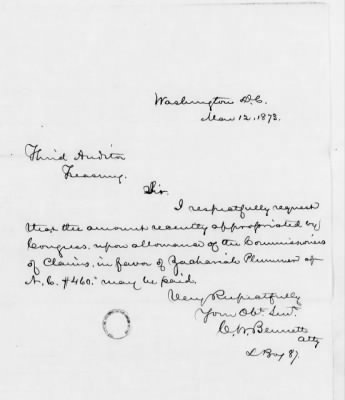 Washington D.C.
Mar 12, 1873.
Third Auditor
Treasury.
Sir.
I respectfully request
that the amount recently appropriated by
Congress, upon allowance of the Commissioners
of Claims, in favor of Zachariah Plummer of
N. C. $460.- may be paid.
Very Respectfully
Your Obt. Servt.
C. W. Bennett
Atty
L Box 87.